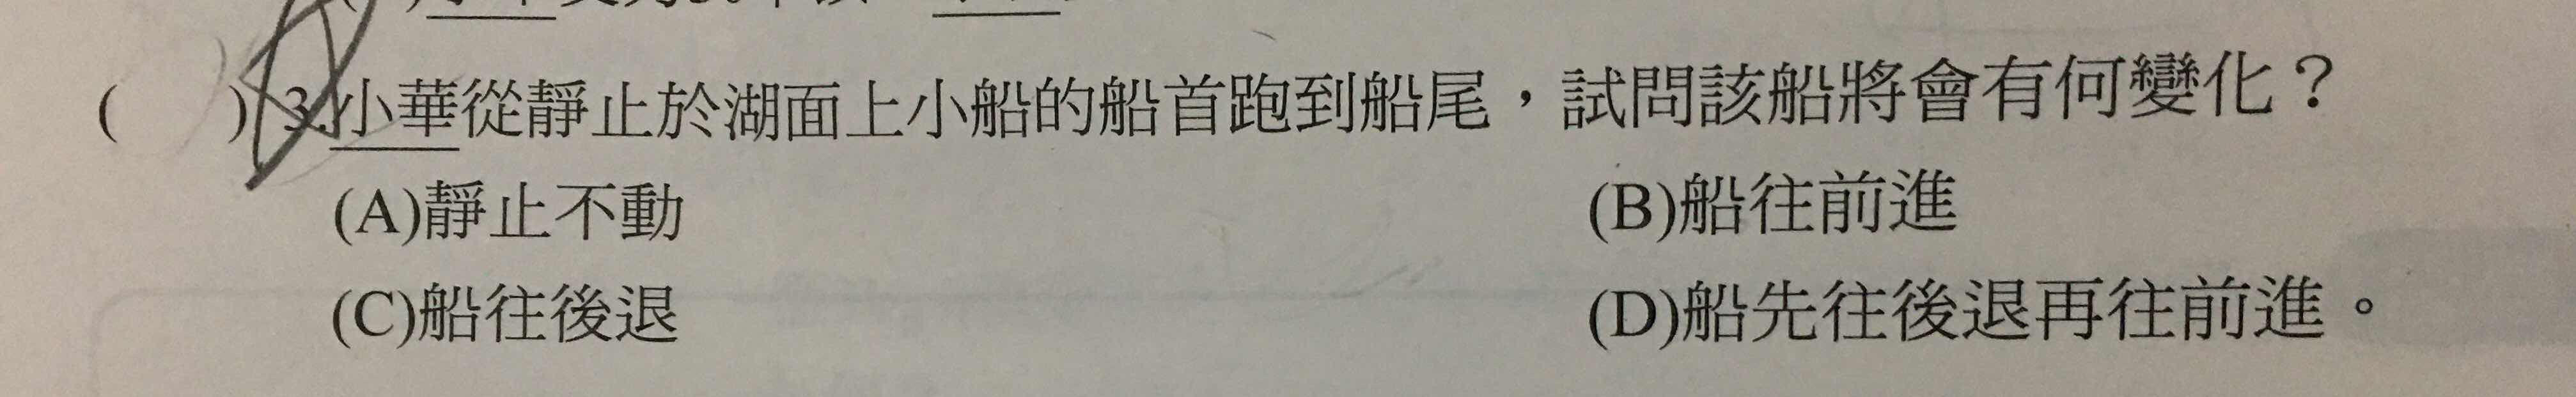 (　　) 3.小華從靜止於湖面上小船的船首跑到船尾，試問該船將會有何變化？
(A)靜止不動　(B)船往前進
(C)船往後退　(D)船先往後退再往前進。